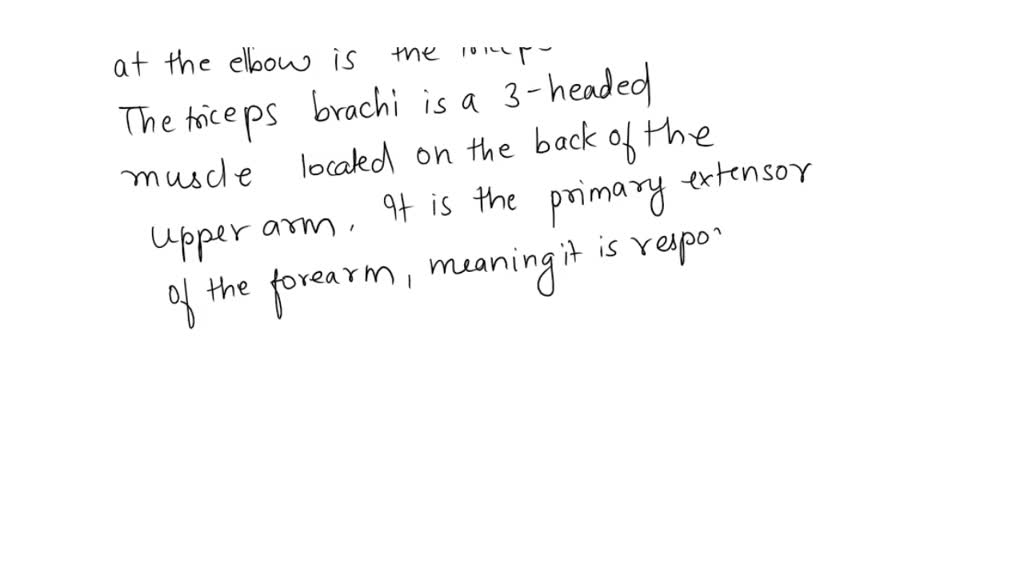 at the elbow is the
The triceps brachi is a 3-headed
muscle located on the back of the
upper arm. It is the primary extensor
of the forearm, meaning it is respo